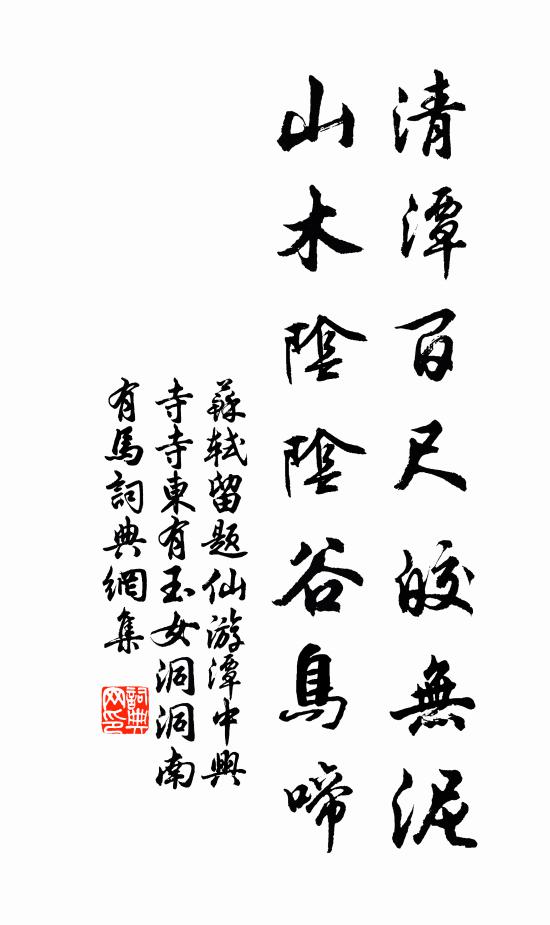 清潭百尺皎無泥
山木陰陰谷鳥啼
蘇軾留題仙游潭中興
寺寺東有玉女洞洞南
有馬詞典網集
詞典网印